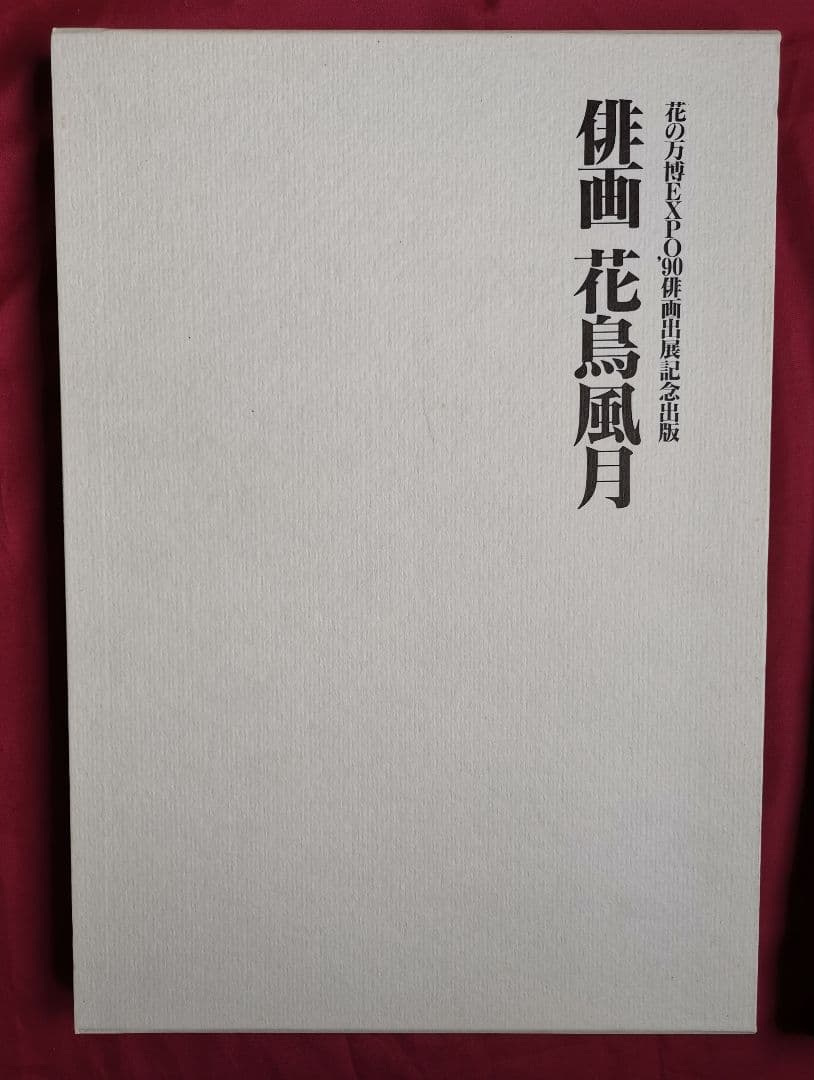 花の万博EXPO'90俳画出展記念出版
俳画 花鳥風月